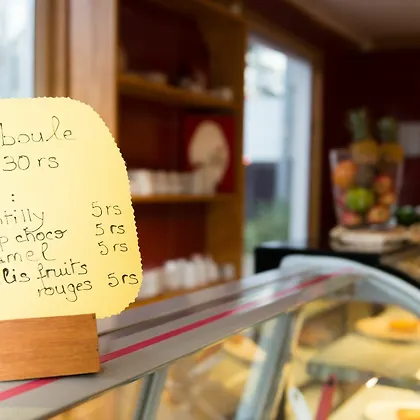 boule
30 rs
:
tilly 5rs
p choco 5rs
amel 5rs
lis fruits
rouges 5rs